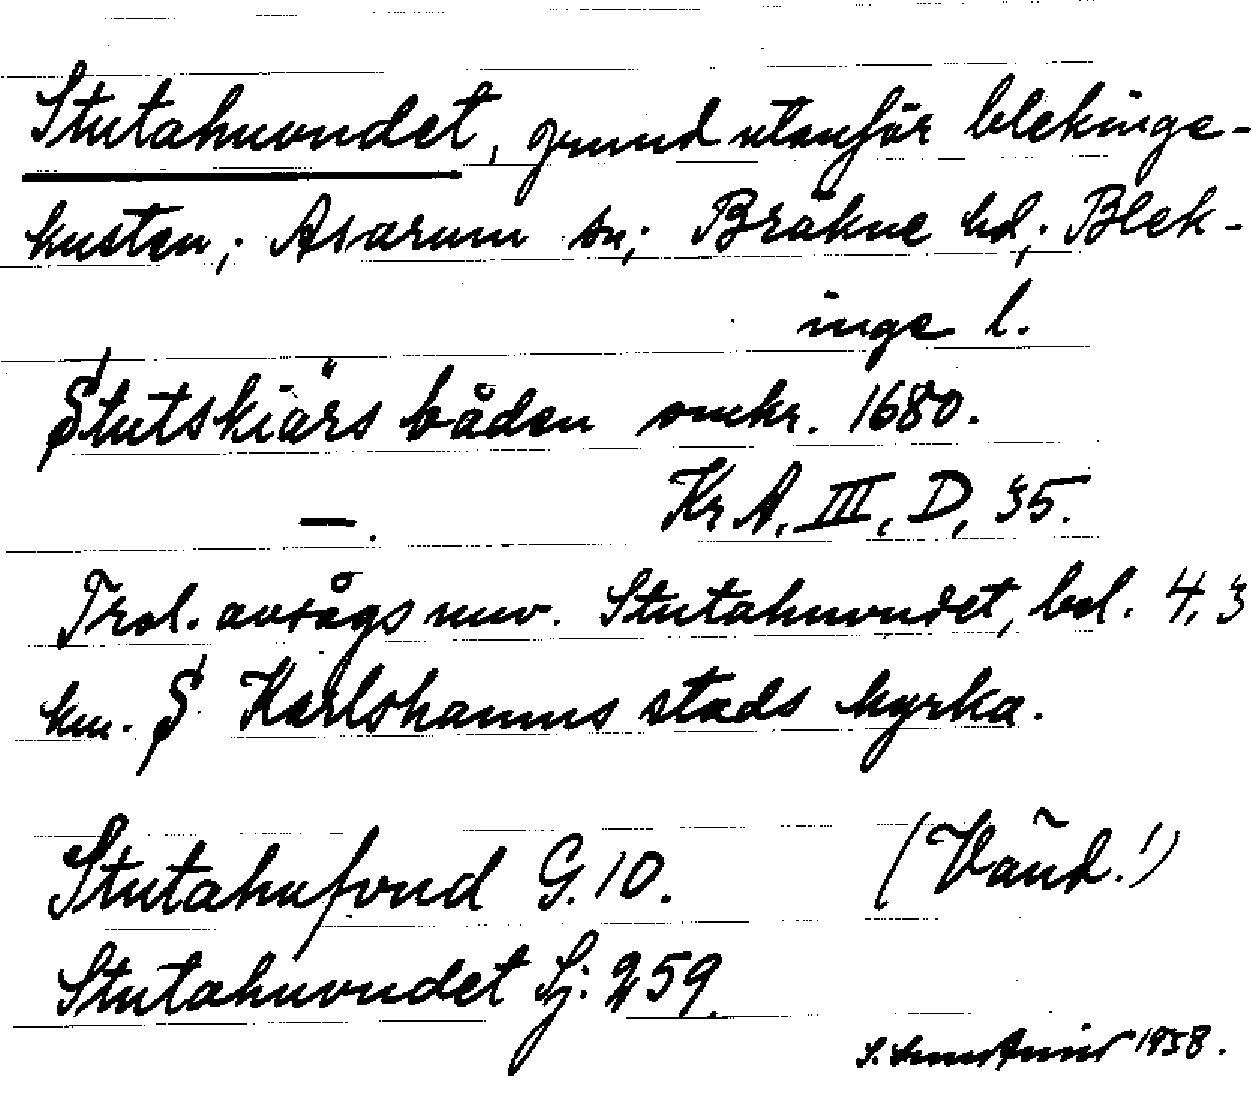 Stutahuvudet, grund utanför blekinge-
kusten; Asarum sn; Bräkne hd; Blek-
inge l.
Stutskiärs båden omkr. 1680.
—. Kr A, III, D, 35.
Trol. avsågs nuv. Stutahuvudet, bel. 4,3
km. S Karlshamns stads kyrka.
Stutahufvud G. 10. (Vänd!)
Stutahuvudet Sj: 259.
S. 1958.